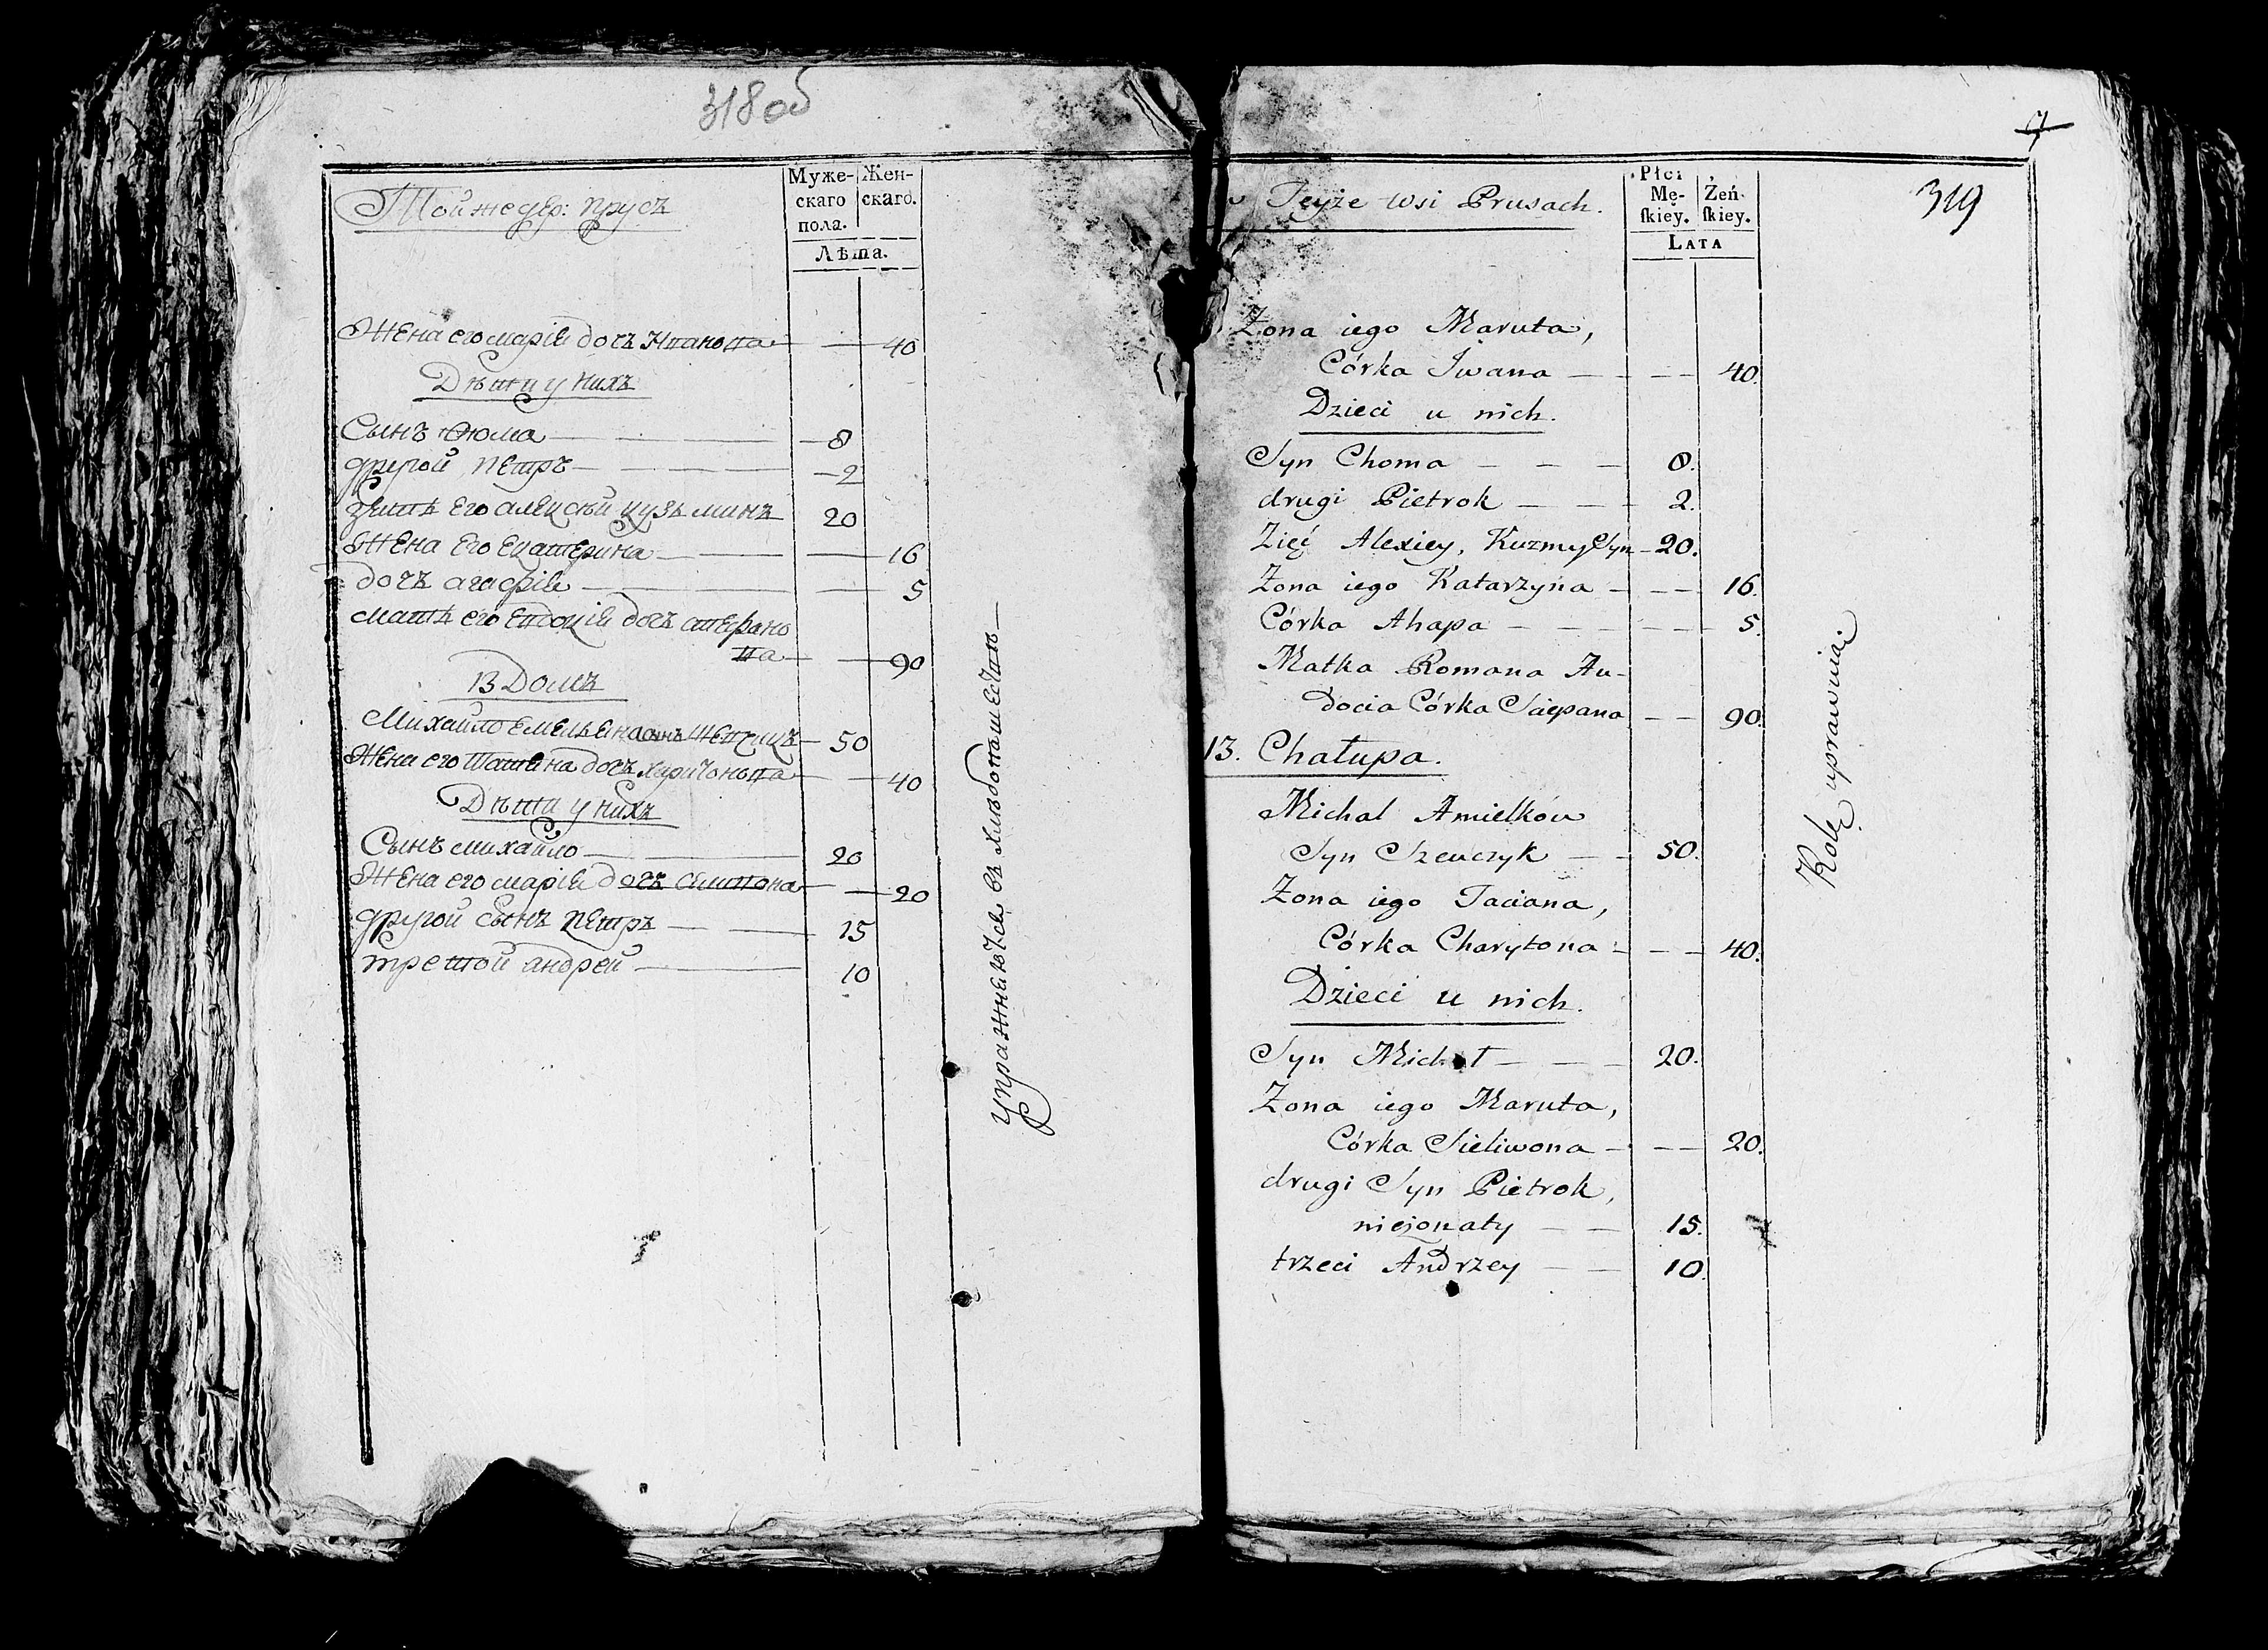 318 об
Той же дер: Прусъ
Муже- Жен-
скаго скаго.
пола.
Лѣта.
Жена его марія дочь Иванова — — 40
Дѣти у нихъ
Сынъ Фома — — — 8
другой Петръ — — — 2
Зять его алексѣй кузьминъ 20
Жена Его Екатерина — — — 16
дочь агафія — — — 5
мать его Евдокія дочь стефано
ва — — 90
13 Домъ
Михайло Емельяна сынъ Шевчикъ — 50
Жена его Татяна дочь харитонова — — 40
Дѣти у нихъ
Сынъ михайло — — 20
Жена его марія дочь — — 20
другой сынъ Петръ — — 15
третой андрей — — 10
Упражняются въ хлѣбопашествѣ —
7
319
w Teyże wsi Prusach.
Płci
Mę- Żeń-
skiey. skiey.
Lata
Żona iego Maruta,
Córka Iwana — — — 40.
Dzieci u nich.
Syn Choma — — — 8.
drugi Pietrok — — — 2.
Zięć Alexiey, Kuzmy Syn — 20.
Żona iego Katarzyna — — — 16.
Córka Ahapa — — — — 5.
Matka Romana Au-
docia Córka Sciepana — — 90.
13. Chałupa.
Michał Amielków
Syn Szewczyk — — 50.
Żona iego Taciana,
Córka Charytona — — — 40.
Dzieci u nich.
Syn Michał — — — 20.
Żona iego Maruta,
Córka Sieliwona — — — 20.
drugi Syn Pietrok,
nieżonaty — — 15.
trzeci Andrzey — — 10.
Rolę uprawuią